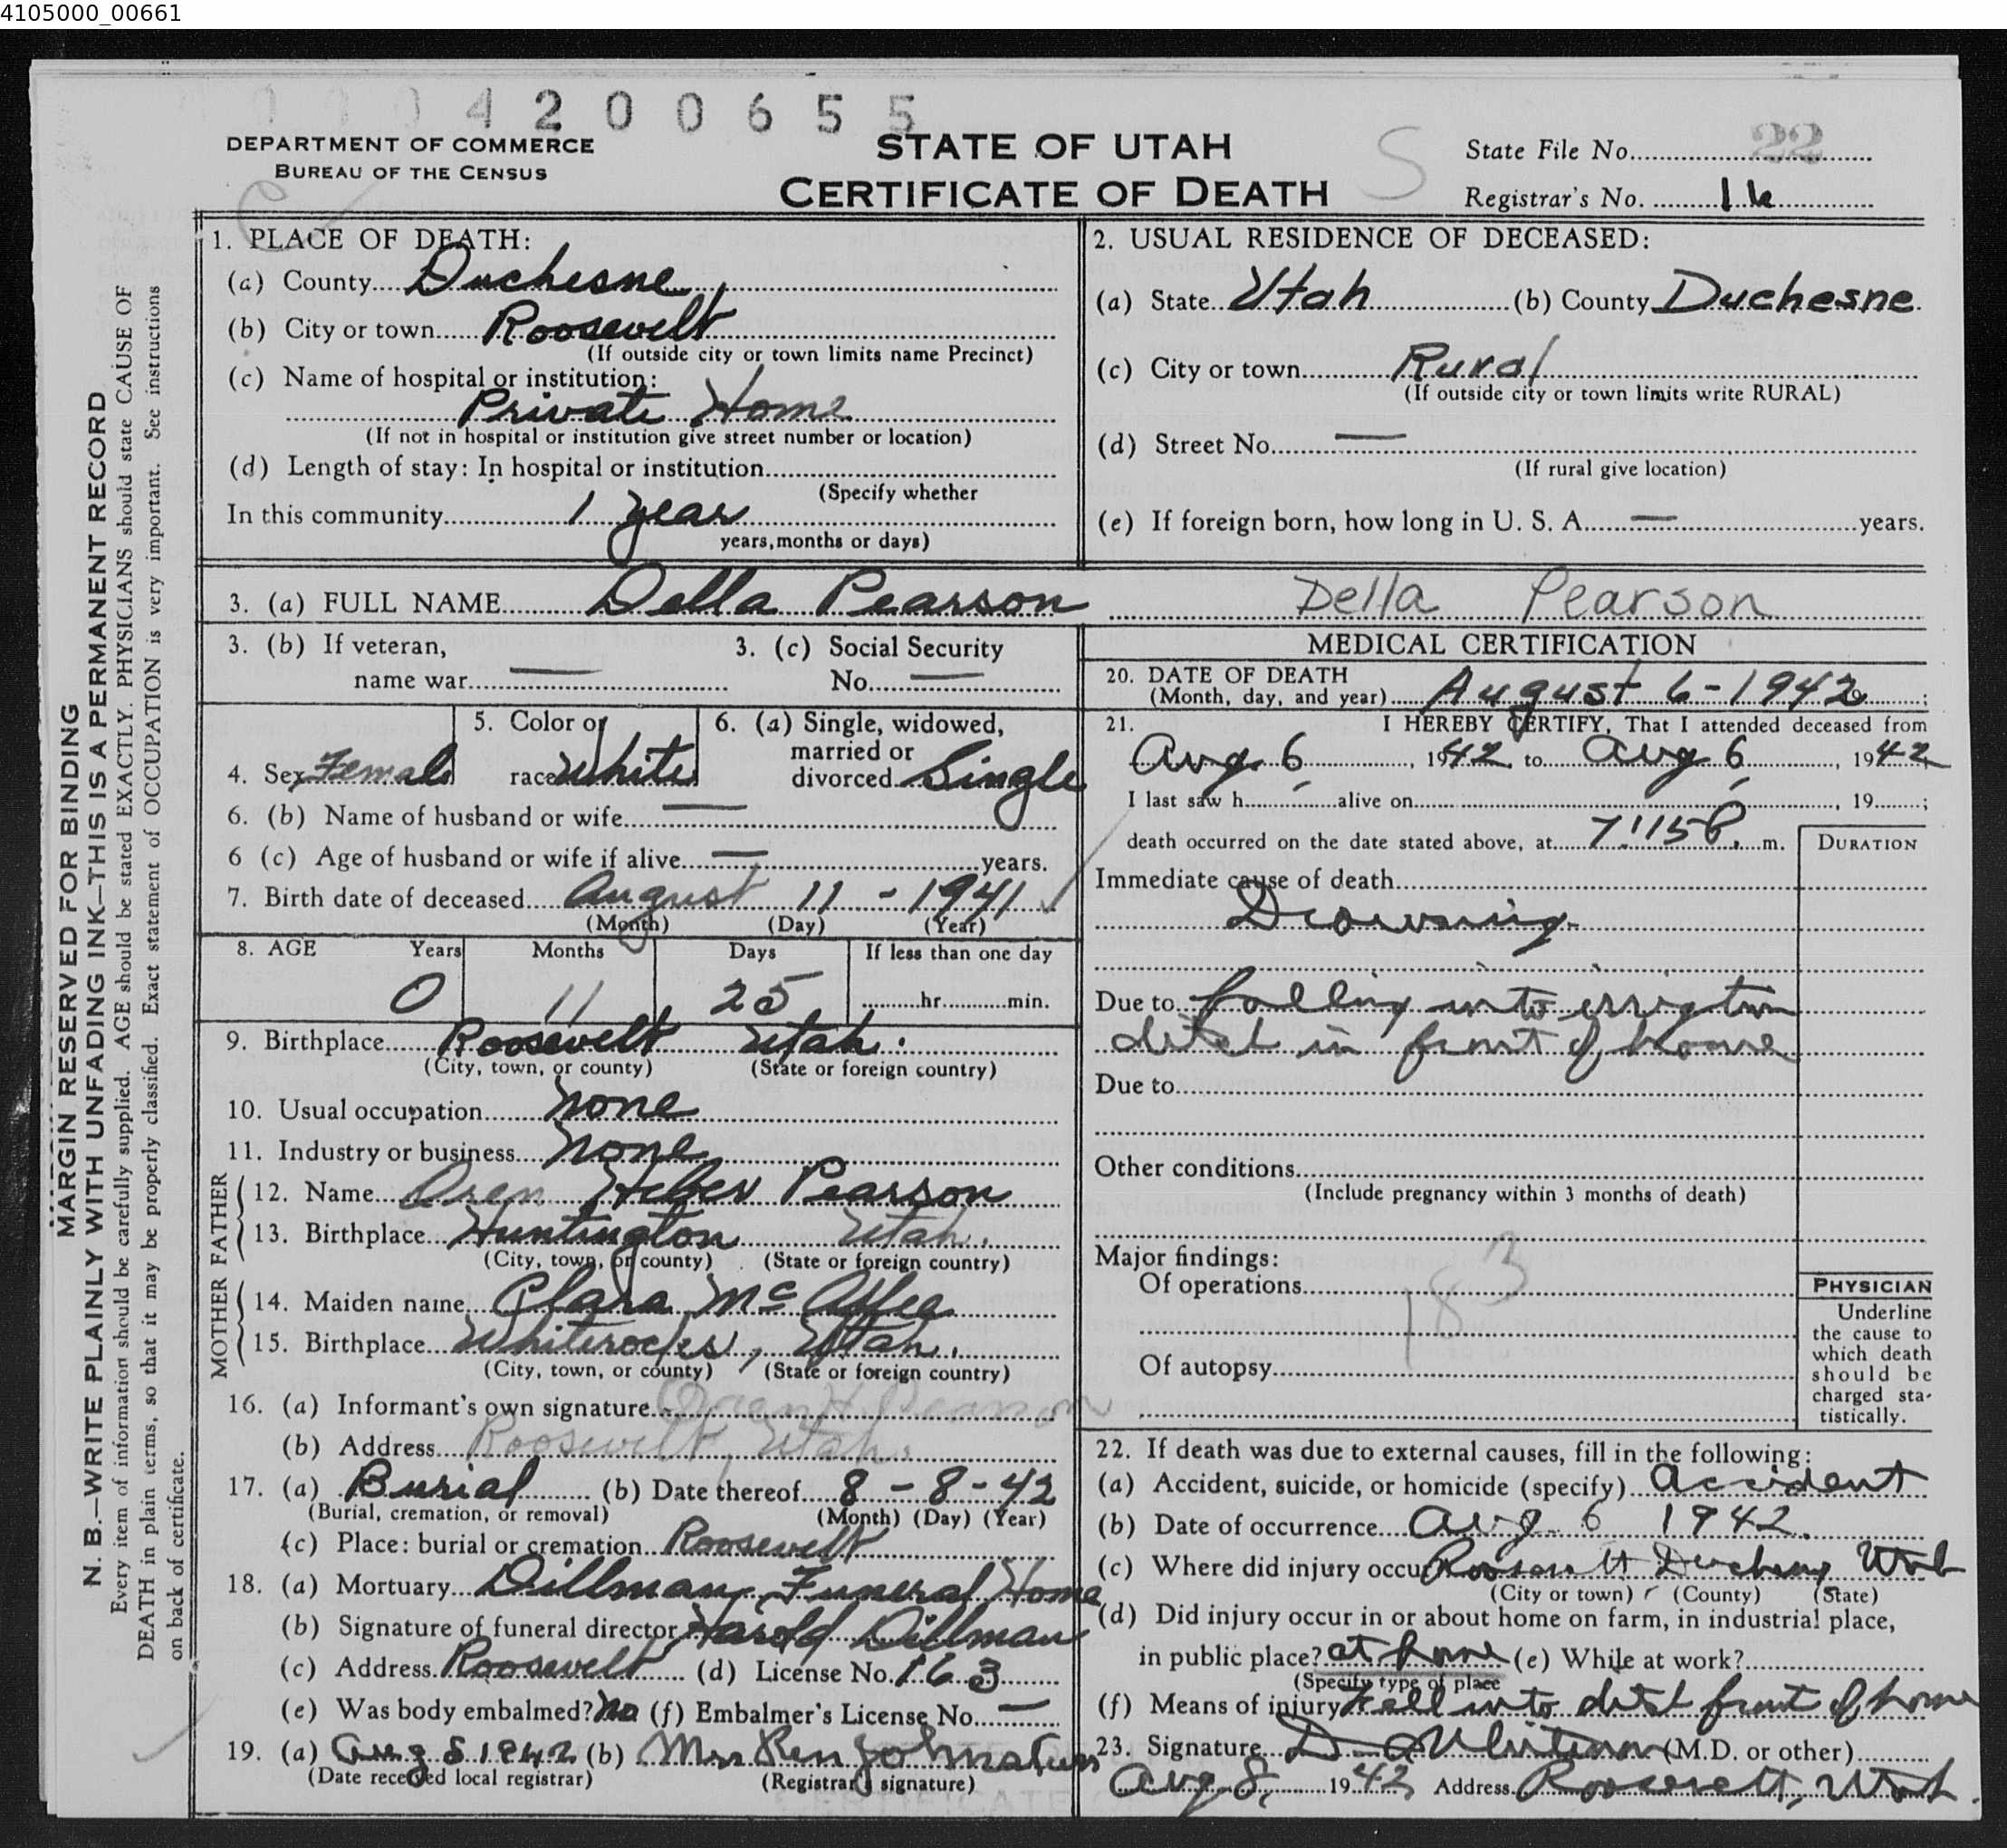 4105000_00661
4 2 0 0 6 5 5
DEPARTMENT OF COMMERCE
BUREAU OF THE CENSUS
STATE OF UTAH
CERTIFICATE OF DEATH
S
State File No. 22
Registrar's No. 16
MARGIN RESERVED FOR BINDING
N. B.—WRITE PLAINLY WITH UNFADING INK—THIS IS A PERMANENT RECORD
Every item of information should be carefully supplied. AGE should be stated EXACTLY. PHYSICIANS should state CAUSE OF
DEATH in plain terms, so that it may be properly classified. Exact statement of OCCUPATION is very important. See instructions
on back of certificate.
1. PLACE OF DEATH:
(a) County Duchesne
(b) City or town Roosevelt
(If outside city or town limits name Precinct)
(c) Name of hospital or institution:
Private Home
(If not in hospital or institution give street number or location)
(d) Length of stay: In hospital or institution
(Specify whether
In this community 1 year
years, months or days)
2. USUAL RESIDENCE OF DECEASED:
(a) State Utah (b) County Duchesne
(c) City or town Rural
(If outside city or town limits write RURAL)
(d) Street No. —
(If rural give location)
(e) If foreign born, how long in U. S. A. — years.
3. (a) FULL NAME Della Pearson Della Pearson
3. (b) If veteran,
name war —
3. (c) Social Security
No. —
4. Sex Female
5. Color or
race White
6. (a) Single, widowed,
married or
divorced Single
6. (b) Name of husband or wife —
6 (c) Age of husband or wife if alive — years.
7. Birth date of deceased August 11 - 1941
(Month) (Day) (Year)
8. AGE Years Months Days If less than one day
0 11 25 hr. min.
9. Birthplace Roosevelt Utah.
(City, town, or county) (State or foreign country)
10. Usual occupation none
11. Industry or business none
FATHER
12. Name Oren Heber Pearson
13. Birthplace Huntington Utah.
(City, town, or county) (State or foreign country)
MOTHER
14. Maiden name Clara McAffee
15. Birthplace Whiterocks, Utah.
(City, town, or county) (State or foreign country)
16. (a) Informant's own signature Oren H Pearson
(b) Address Roosevelt, Utah.
17. (a) Burial (b) Date thereof 8 - 8 - 42
(Burial, cremation, or removal) (Month) (Day) (Year)
(c) Place: burial or cremation Roosevelt
18. (a) Mortuary Dillman Funeral Home
(b) Signature of funeral director Harold Dillman
(c) Address Roosevelt (d) License No. 163
(e) Was body embalmed? No (f) Embalmer's License No. —
19. (a) Aug 8 1942 (b) Mrs Ren Johnstun
(Date received local registrar) (Registrar's signature)
MEDICAL CERTIFICATION
20. DATE OF DEATH
(Month, day, and year) August 6 - 1942;
21. I HEREBY CERTIFY, That I attended deceased from
Aug 6, 1942 to Aug 6, 1942
I last saw h alive on , 19 ;
death occurred on the date stated above, at 7:15 P. m.
DURATION
Immediate cause of death
Drowning
Due to falling into irrigation
ditch in front of home
Due to
Other conditions
(Include pregnancy within 3 months of death)
Major findings:
Of operations
183
Of autopsy
PHYSICIAN
Underline
the cause to
which death
should be
charged sta-
tistically.
22. If death was due to external causes, fill in the following:
(a) Accident, suicide, or homicide (specify) Accident
(b) Date of occurrence Aug 6 1942.
(c) Where did injury occur Roosevelt Duchesne Utah
(City or town) (County) (State)
(d) Did injury occur in or about home on farm, in industrial place,
in public place? at home (e) While at work?
(Specify type of place
(f) Means of injury Fell into ditch front of home
23. Signature (M.D. or other)
Aug 8, 1942 Address Roosevelt, Utah.